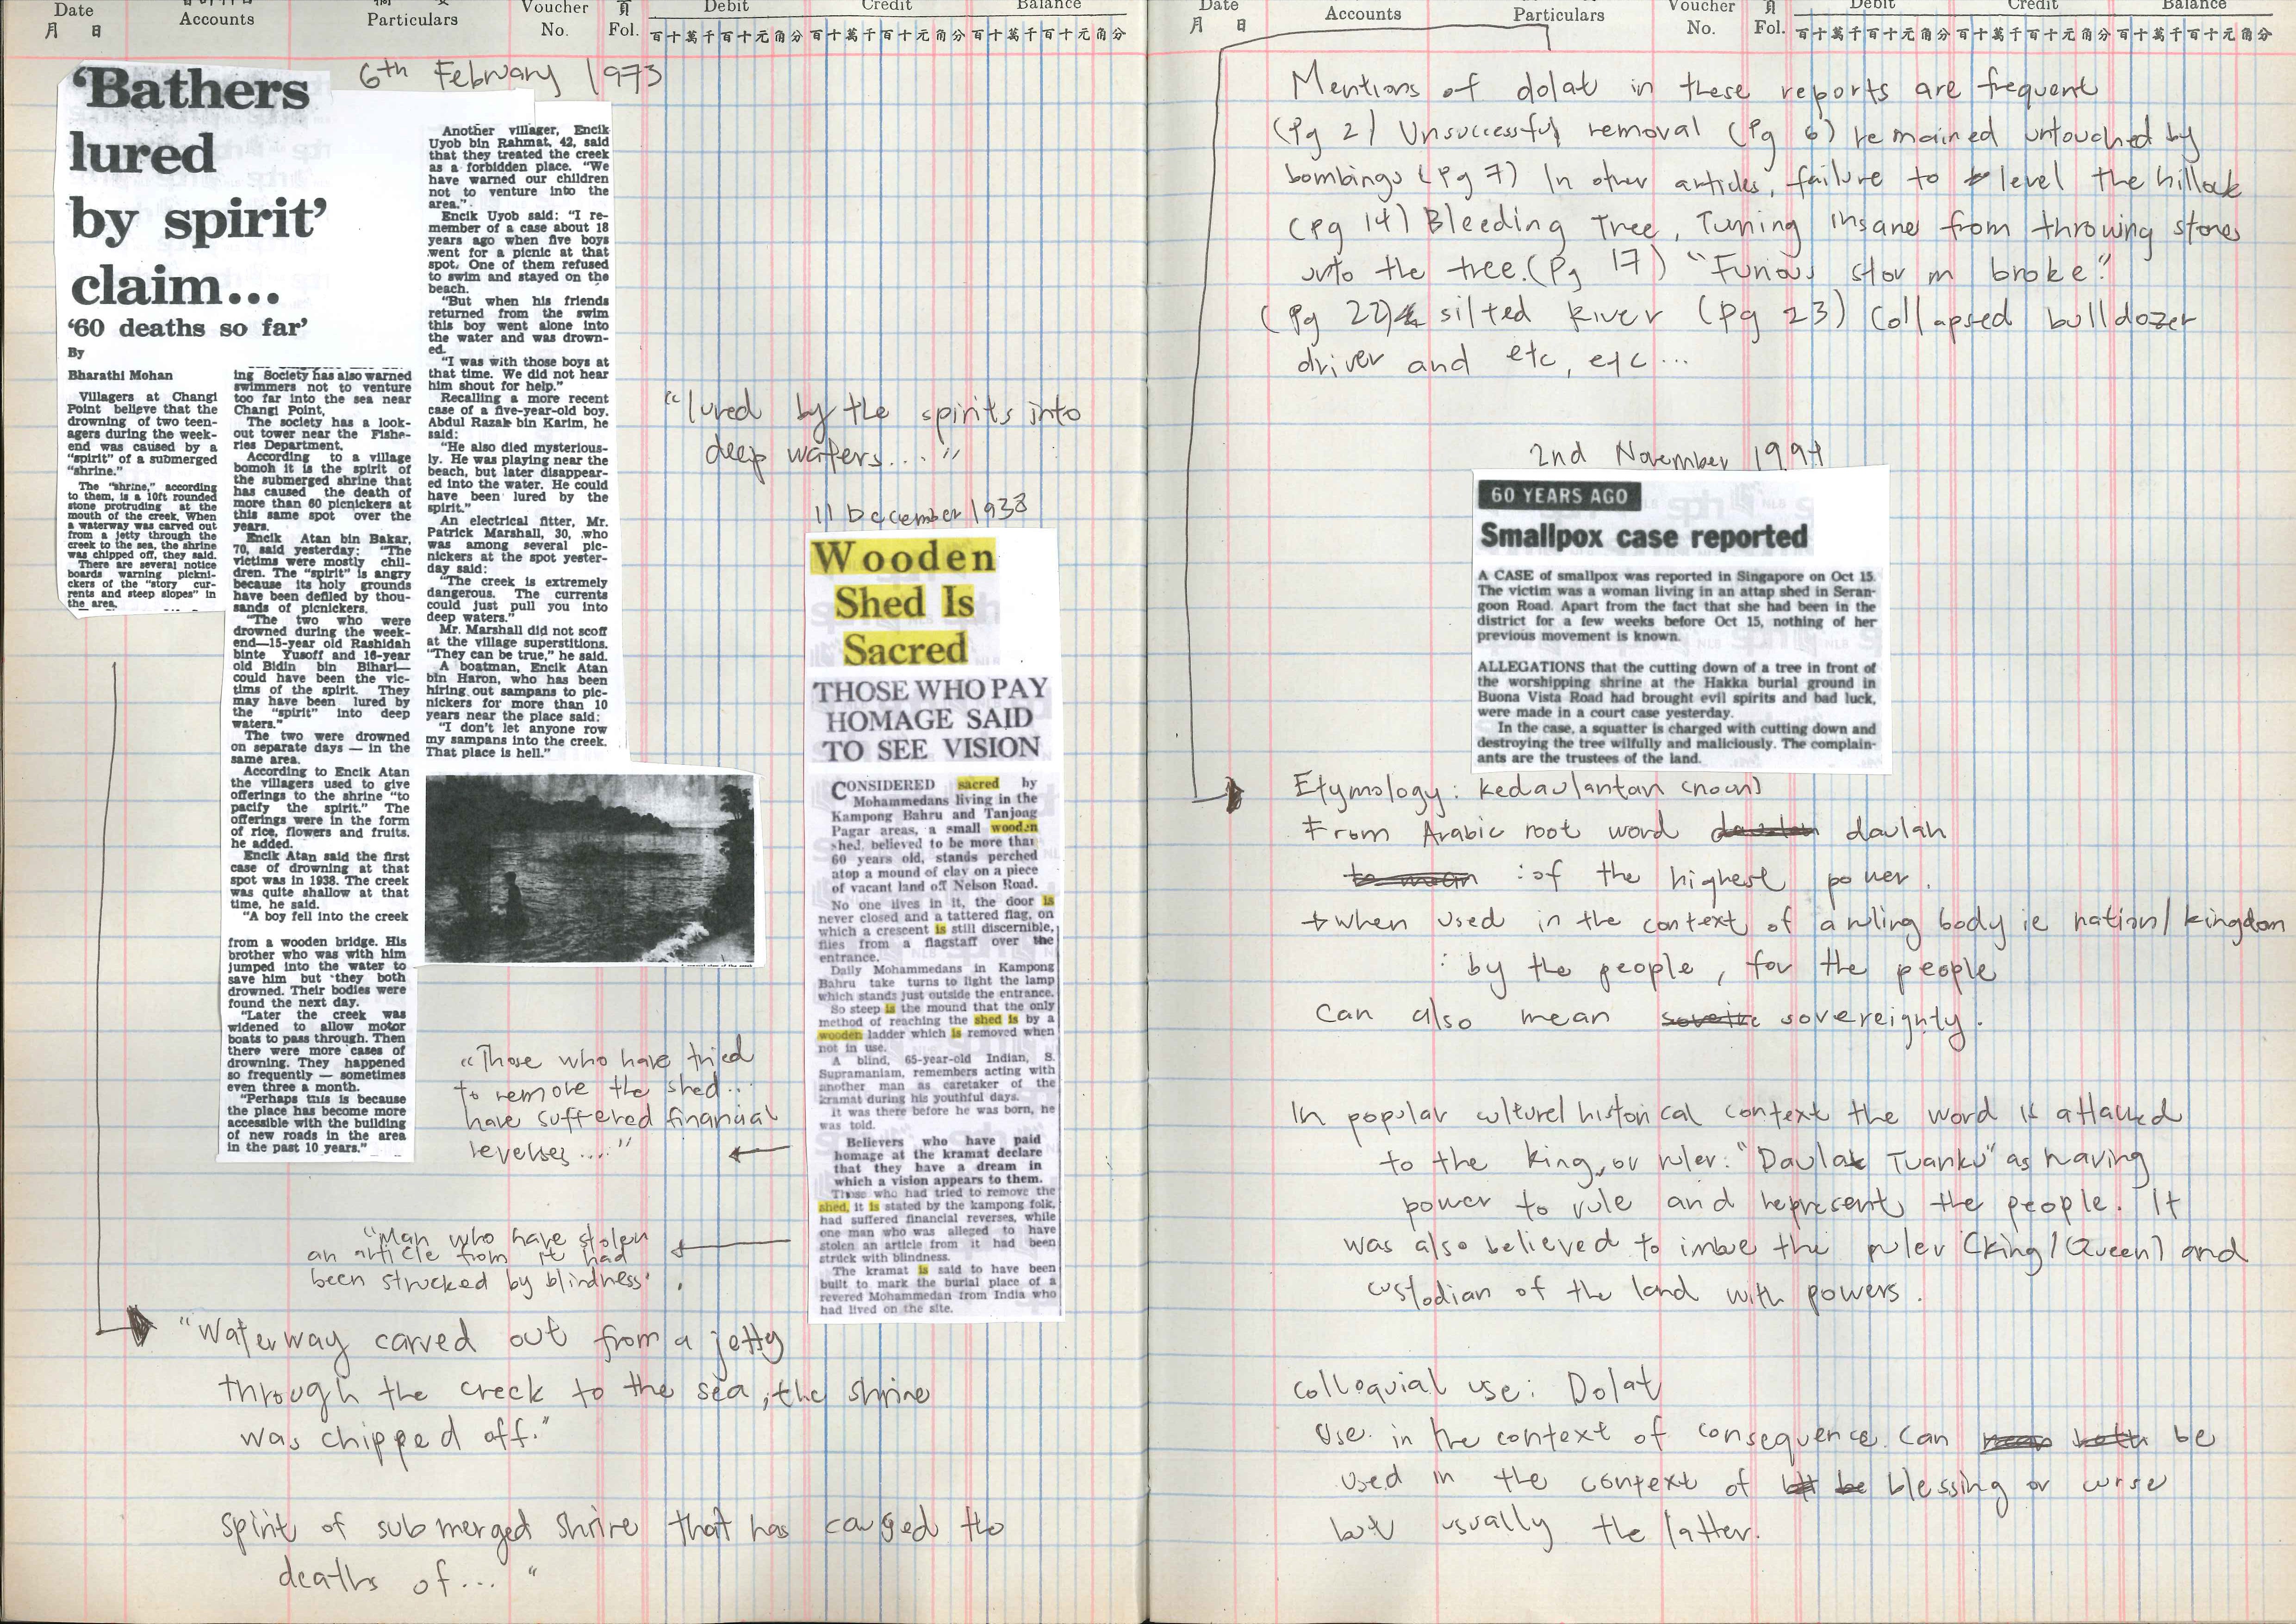 Date
Accounts
Particulars
Voucher
No.
Fol.
Debit
Credit
Balance
月 日
頁
百十萬千百十元角分 百十萬千百十元角分 百十萬千百十元角分
6th February 1973
'Bathers
lured
by spirit'
claim...
'60 deaths so far'
By
Bharathi Mohan
Villagers at Changi
Point believe that the
drowning of two teen-
agers during the week-
end was caused by a
"spirit" of a submerged
"shrine."
The "shrine," according
to them, is a 10ft rounded
stone protruding at the
mouth of the creek. When
a waterway was carved out
from a jetty through the
creek to the sea, the shrine
was chipped off, they said.
There are several notice
boards warning picni-
ckers of the "story cur-
rents and steep slopes" in
the area.
ing Society has also warned
swimmers not to venture
too far into the sea near
Changi Point,
The society has a look-
out tower near the Fishe-
ries Department.
According to a village
bomoh it is the spirit of
the submerged shrine that
has caused the death of
more than 60 picnickers at
this same spot over the
years.
Encik Atan bin Bakar,
70, said yesterday: "The
victims were mostly chil-
dren. The "spirit" is angry
because its holy grounds
have been defiled by thou-
sands of picnickers.
"The two who were
drowned during the week-
end—15-year old Rashidah
binte Yusoff and 16-year
old Bidin bin Bihari—
could have been the vic-
tims of the spirit. They
may have been lured by
the "spirit" into deep
waters."
The two were drowned
on separate days — in the
same area.
According to Encik Atan
the villagers used to give
offerings to the shrine "to
pacify the spirit." The
offerings were in the form
of rice, flowers and fruits,
he added.
Encik Atan said the first
case of drowning at that
spot was in 1938. The creek
was quite shallow at that
time, he said.
"A boy fell into the creek
from a wooden bridge. His
brother who was with him
jumped into the water to
save him but they both
drowned. Their bodies were
found the next day.
"Later the creek was
widened to allow motor
boats to pass through. Then
there were more cases of
drowning. They happened
so frequently — sometimes
even three a month.
"Perhaps this is because
the place has become more
accessible with the building
of new roads in the area
in the past 10 years."
Another villager, Encik
Uyob bin Rahmat, 42, said
that they treated the creek
as a forbidden place. "We
have warned our children
not to venture into the
area."
Encik Uyob said: "I re-
member of a case about 18
years ago when five boys
went for a picnic at that
spot. One of them refused
to swim and stayed on the
beach.
"But when his friends
returned from the swim
this boy went alone into
the water and was drown-
ed.
"I was with those boys at
that time. We did not hear
him shout for help."
Recalling a more recent
case of a five-year-old boy.
Abdul Razak bin Karim, he
said:
"He also died mysterious-
ly. He was playing near the
beach, but later disappear-
ed into the water. He could
have been lured by the
spirit."
An electrical fitter, Mr.
Patrick Marshall, 30, who
was among several pic-
nickers at the spot yester-
day said:
"The creek is extremely
dangerous. The currents
could just pull you into
deep waters."
Mr. Marshall did not scoff
at the village superstitions.
"They can be true," he said.
A boatman, Encik Atan
bin Haron, who has been
hiring out sampans to pic-
nickers for more than 10
years near the place said:
"I don't let anyone row
my sampans into the creek.
That place is hell."
"lured by the spirits into
deep waters...."
11 December 1938
Wooden
Shed Is
Sacred
THOSE WHO PAY
HOMAGE SAID
TO SEE VISION
CONSIDERED sacred by
Mohammedans living in the
Kampong Bahru and Tanjong
Pagar areas, a small wooden
shed, believed to be more than
60 years old, stands perched
atop a mound of clay on a piece
of vacant land off Nelson Road.
No one lives in it, the door is
never closed and a tattered flag, on
which a crescent is still discernible,
flies from a flagstaff over the
entrance.
Daily Mohammedans in Kampong
Bahru take turns to light the lamp
which stands just outside the entrance.
So steep is the mound that the only
method of reaching the shed is by a
wooden ladder which is removed when
not in use.
A blind, 65-year-old Indian, S.
Supramaniam, remembers acting with
another man as caretaker of the
kramat during his youthful days.
It was there before he was born, he
was told.
Believers who have paid
homage at the kramat declare
that they have a dream in
which a vision appears to them.
Those who had tried to remove the
shed, it is stated by the kampong folk,
had suffered financial reverses, while
one man who was alleged to have
stolen an article from it had been
struck with blindness.
The kramat is said to have been
built to mark the burial place of a
revered Mohammedan from India who
had lived on the site.
"Those who have tried
to remove the shed...
have suffered financial
reverses...."
"Man who have stolen
an article from it had
been strucked by blindness".
"Waterway carved out from a jetty
through the creek to the sea, the shrine
was chipped off."
spirit of submerged shrine that has caused the
deaths of... "
Date
Accounts
Particulars
Voucher
No.
Fol.
Debit
Credit
Balance
月 日
頁
百十萬千百十元角分 百十萬千百十元角分 百十萬千百十元角分
Mentions of dolat in these reports are frequent
(Pg 2) Unsuccessful removal (Pg 6) remained untouched by
bombings (Pg 7) In other articles, failure to level the hillock
(pg 14) Bleeding Tree, Turning insane from throwing stones
unto the tree. (Pg 17) "Furious storm broke"
(Pg 22) silted River (pg 23) Collapsed bulldozer
driver and etc, etc...
2nd November 1994
60 YEARS AGO
Smallpox case reported
A CASE of smallpox was reported in Singapore on Oct 15.
The victim was a woman living in an attap shed in Seran-
goon Road. Apart from the fact that she had been in the
district for a few weeks before Oct 15, nothing of her
previous movement is known.
ALLEGATIONS that the cutting down of a tree in front of
the worshipping shrine at the Hakka burial ground in
Buona Vista Road had brought evil spirits and bad luck,
were made in a court case yesterday.
In the case, a squatter is charged with cutting down and
destroying the tree wilfully and maliciously. The complain-
ants are the trustees of the land.
Etymology: kedaulantan (noun)
From Arabic root word daulah
to mean : of the highest power.
→ when used in the context of a ruling body ie nation/kingdom
: by the people, for the people
Can also mean sovereignty.
In popular culture/historical context the word is attached
to the king, or ruler: "Daulat Tuanku" as having
power to rule and represent the people. It
was also believed to imbue the ruler (King/Queen) and
custodian of the land with powers.
Colloquial use: Dolat
Use in the context of consequence. Can be
used in the context of blessing or curse
but usually the latter.